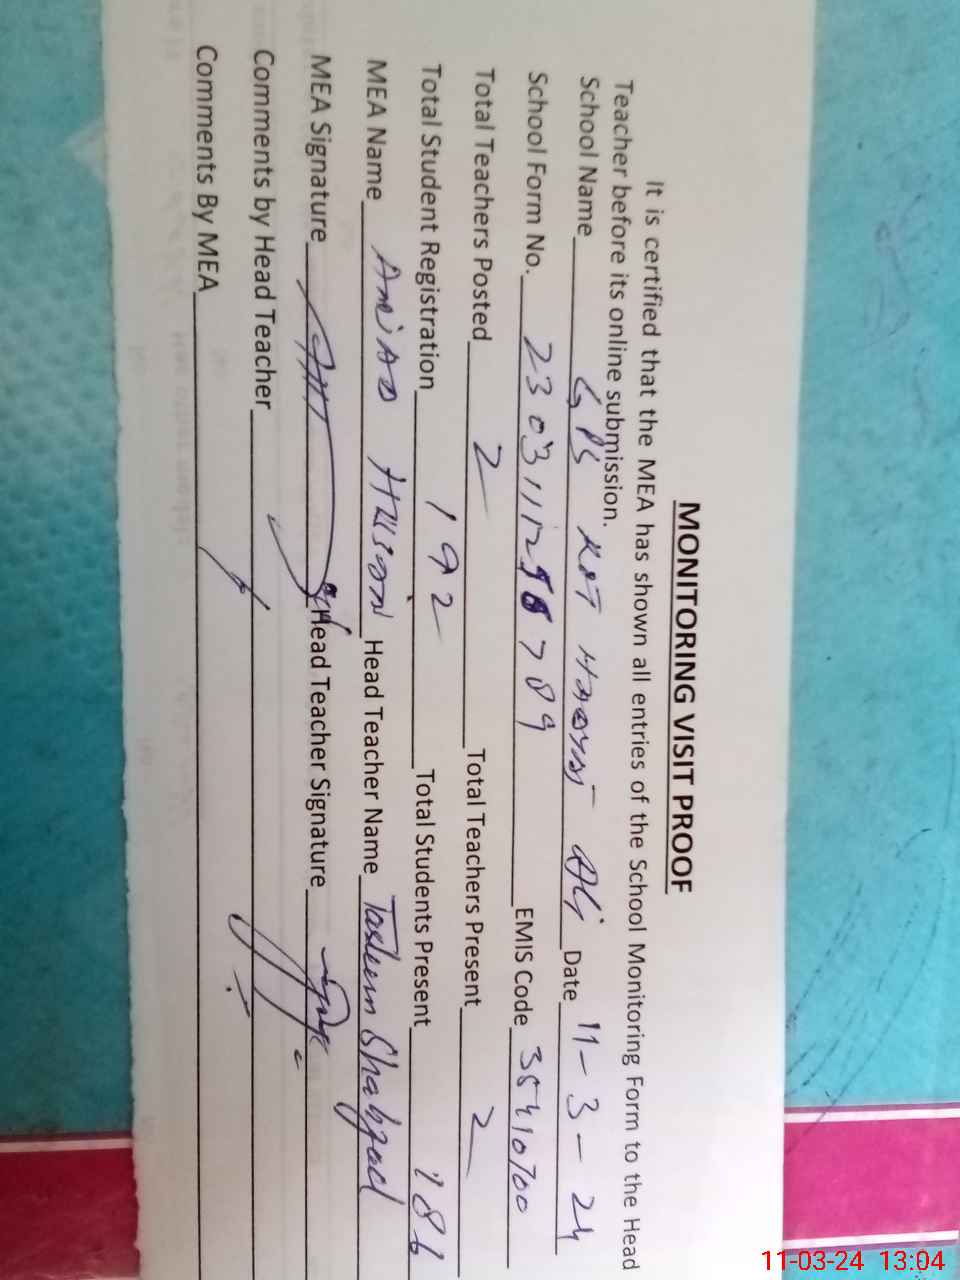 MONITORING VISIT PROOF
It is certified that the MEA has shown all entries of the School Monitoring Form to the Head
Teacher before its online submission.
School Name GPS Kot Ali Date 11-3-24
School Form No. EMIS Code 38410700
Total Teachers Posted 2 Total Teachers Present 2
Total Student Registration 192 Total Students Present 186
MEA Name Head Teacher Name Tasleem Shahzad
MEA Signature Head Teacher Signature
Comments by Head Teacher
Comments By MEA
11-03-24 13:04